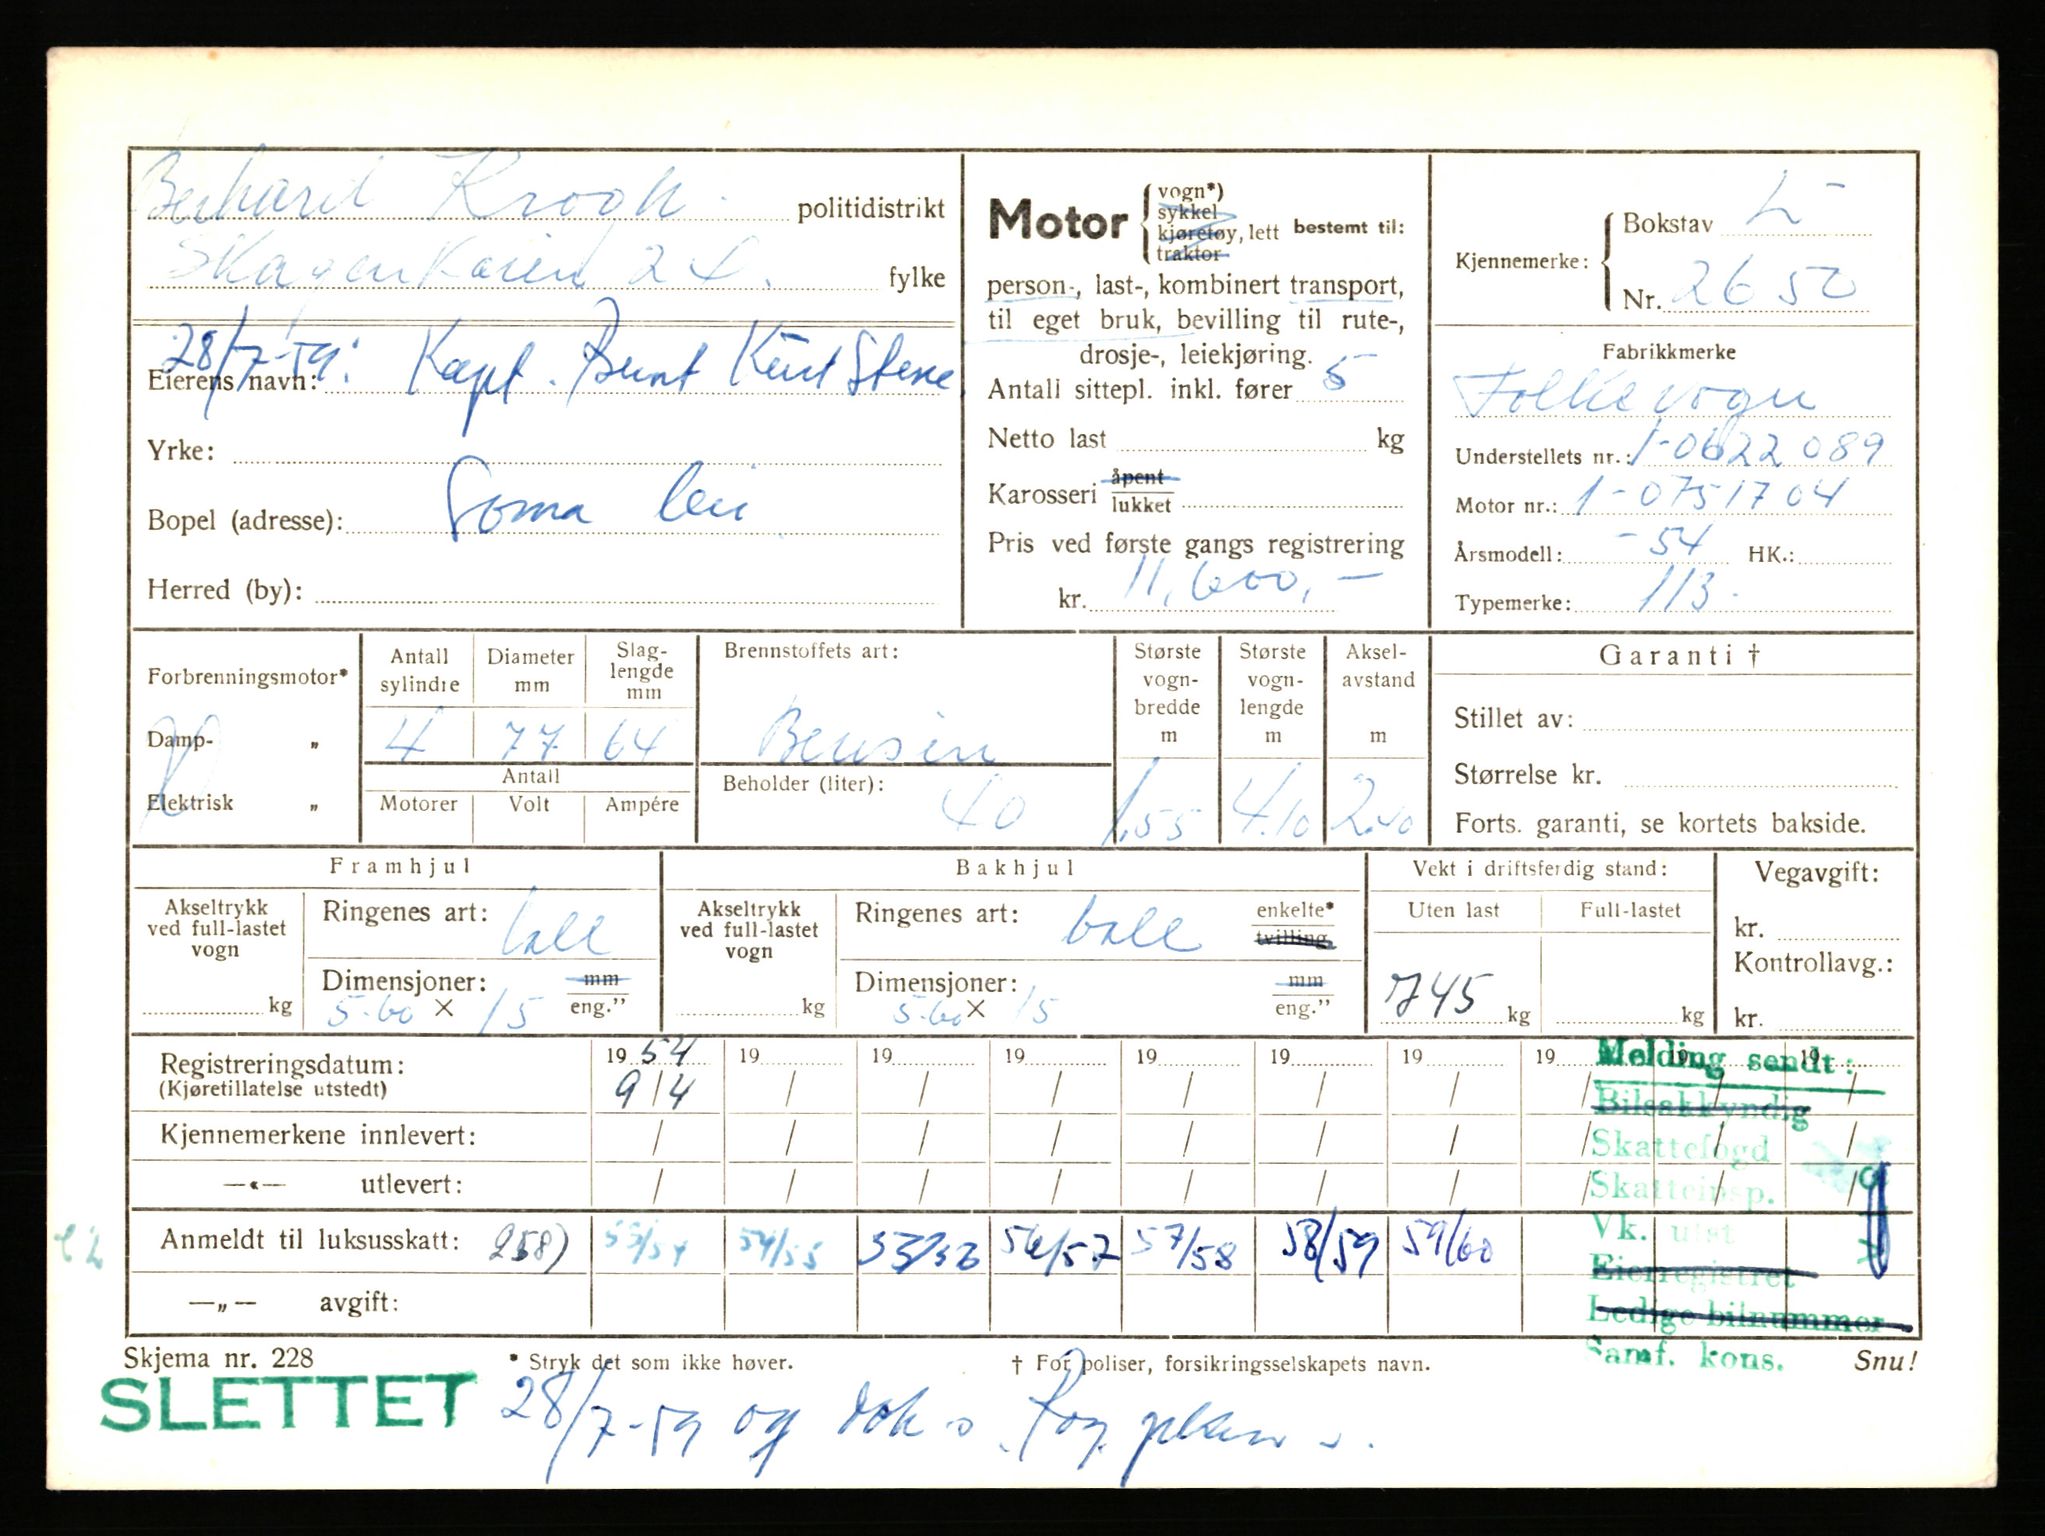 Berhard Krooh. politidistrikt
Skagenkaien 24. fylke
28/7-59: Kapt. Bernt Kent Stene
Eierens navn:
Yrke:
Bopel (adresse): Soma leir
Herred (by):
Motor { vogn*)
sykkel
kjøretøy, lett bestemt til:
traktor
person-, last-, kombinert transport,
til eget bruk, bevilling til rute-,
drosje-, leiekjøring.
Antall sittepl. inkl. fører 5
Netto last kg
Karosseri åpent
lukket
Pris ved første gangs registrering
kr. 11,600,-
Kjennemerke: { Bokstav L-
Nr. 2650
Fabrikkmerke
Folkevogn
Understellets nr.: 1-0622089
Motor nr.: 1-0751704
Årsmodell: -54 HK.:
Typemerke: 113.
Forbrenningsmotor*
Damp- „
Elektrisk „
Antall sylindre Diameter mm Slag-lengde mm
4 77 64
Antall
Motorer Volt Ampére
Brennstoffets art:
Bensin
Beholder (liter): 40
Største vogn-bredde m
1.55
Største vogn-lengde m
4.10
Aksel-avstand m
2.40
Garanti †
Stillet av:
Størrelse kr.
Forts. garanti, se kortets bakside.
Framhjul
Akseltrykk ved full-lastet vogn
kg
Ringenes art: ball
Dimensjoner: mm
5.60 X 15 eng.”
Bakhjul
Akseltrykk ved full-lastet vogn
kg
Ringenes art: ball enkelte*
tvilling.
Dimensjoner: mm
5.60 X 15 eng.”
Vekt i driftsferdig stand:
Uten last Full-lastet
745 kg kg
Vegavgift:
kr.
Kontrollavg.:
kr.
Registreringsdatum: 19 54 19 19 19 19 19 19 19 19 19
(Kjøretillatelse utstedt) 9/4 / / / / / / / / /
Kjennemerkene innlevert: / / / / / / / / / /
—«— utlevert: / / / / / / / / / /
Anmeldt til luksusskatt: 258) 53/54 54/55 55/56 56/57 57/58 58/59 59/60
—„— avgift:
Melding sendt:
Bilsakkyndig
Skattefogd
Skatteinsp.
Vk. utst
Eierregistret
Ledige bilnummer
Samf. kons.
Skjema nr. 228 * Stryk det som ikke høver. † For poliser, forsikringsselskapets navn. Snu!
SLETTET 28/7-59 og